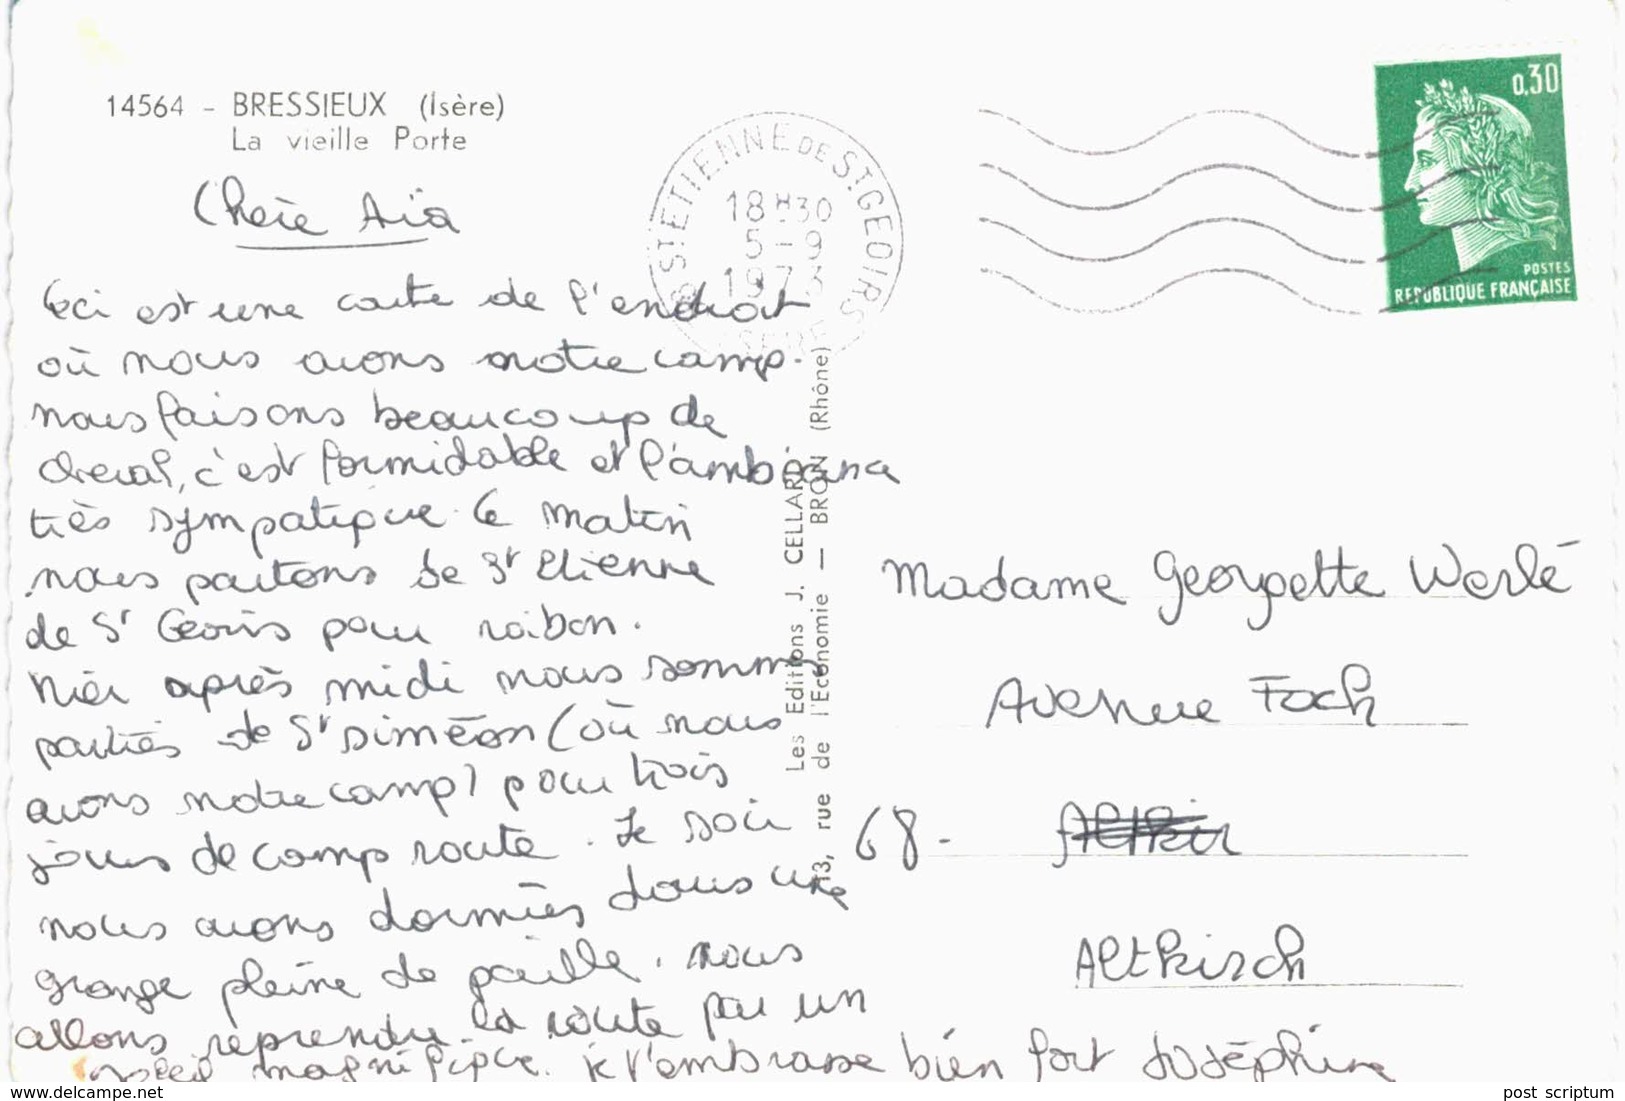 14564 - BRESSIEUX (Isère)
La vieille Porte
Chère Aïa
Ceci est une carte de l'endroit
où nous avons notre camp.
nous faisons beaucoup de
cheval, c'est formidable et l'ambiance
très sympatique. Ce matin
nous partons de St Etienne
de St Geoirs pour roibon.
Hier après midi nous sommes
parties de St Siméon (où nous
avons notre camp) pour trois
jours de camp route. Le soir
nous avons dormies dans une
grange pleine de paille. nous
allons reprendre la route par un
soleil magnifique. je t'embrasse bien fort Joséphine
ST ETIENNE DE ST GEOIRS
18H30
5-9
1973
ISERE
Les Editions J. CELLARD
13, rue de l'Economie — BRON (Rhône)
0,30
POSTES
REPUBLIQUE FRANÇAISE
Madame Georgette Werlé
Avenue Foch
68 - Altkir
Altkirch
post scriptum